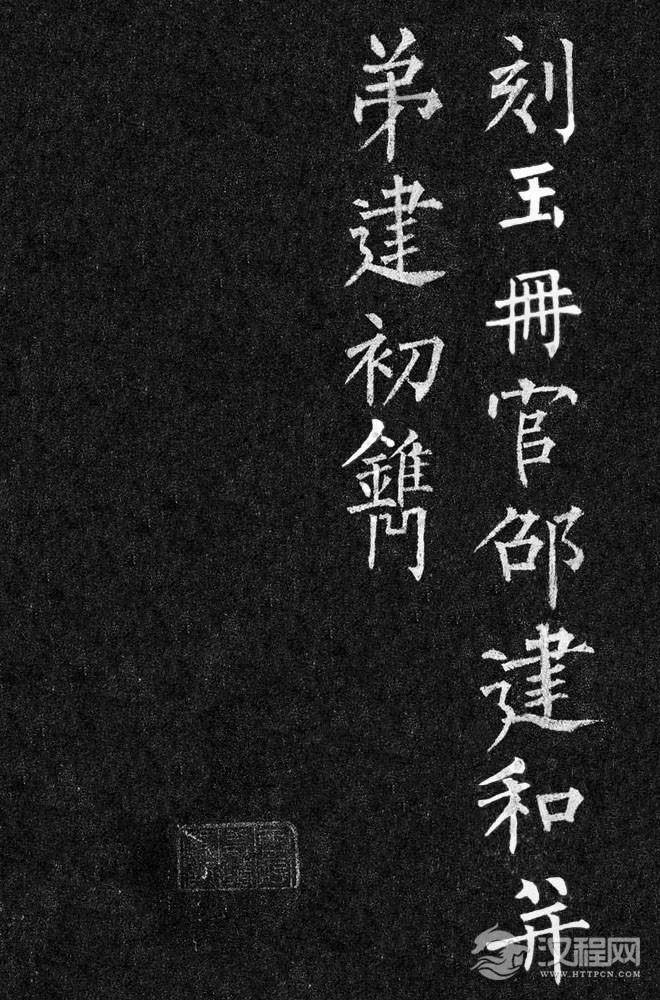 刻玉冊官邵建和并
弟建初鐫
汉程网
WWW.HTTPCN.COM